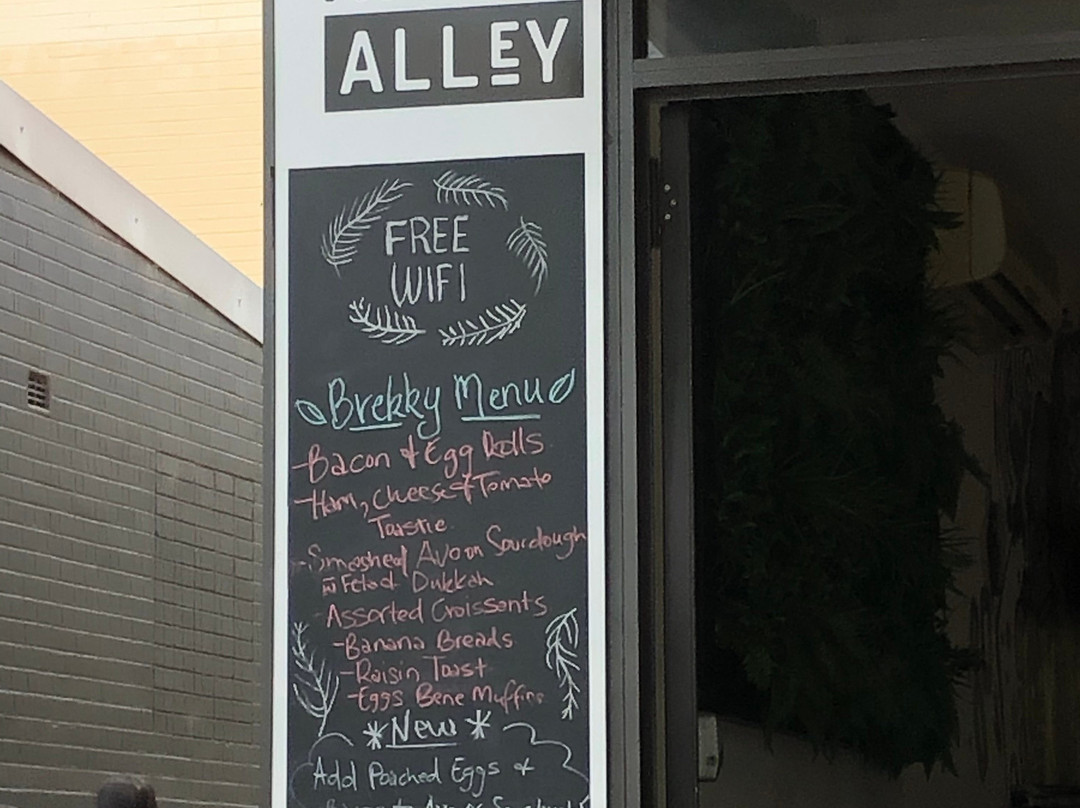 ALLEY
FREE
WIFI
Brekky Menu
-Bacon & Egg Rolls
-Ham, Cheese & Tomato
Toastie
-Smashed Avo on Sourdough
Dukkah
Assorted Croissants
-Banana Breads
-Raisin Toast
-Eggs Bene Muffins
*New*
Add Poached Eggs &